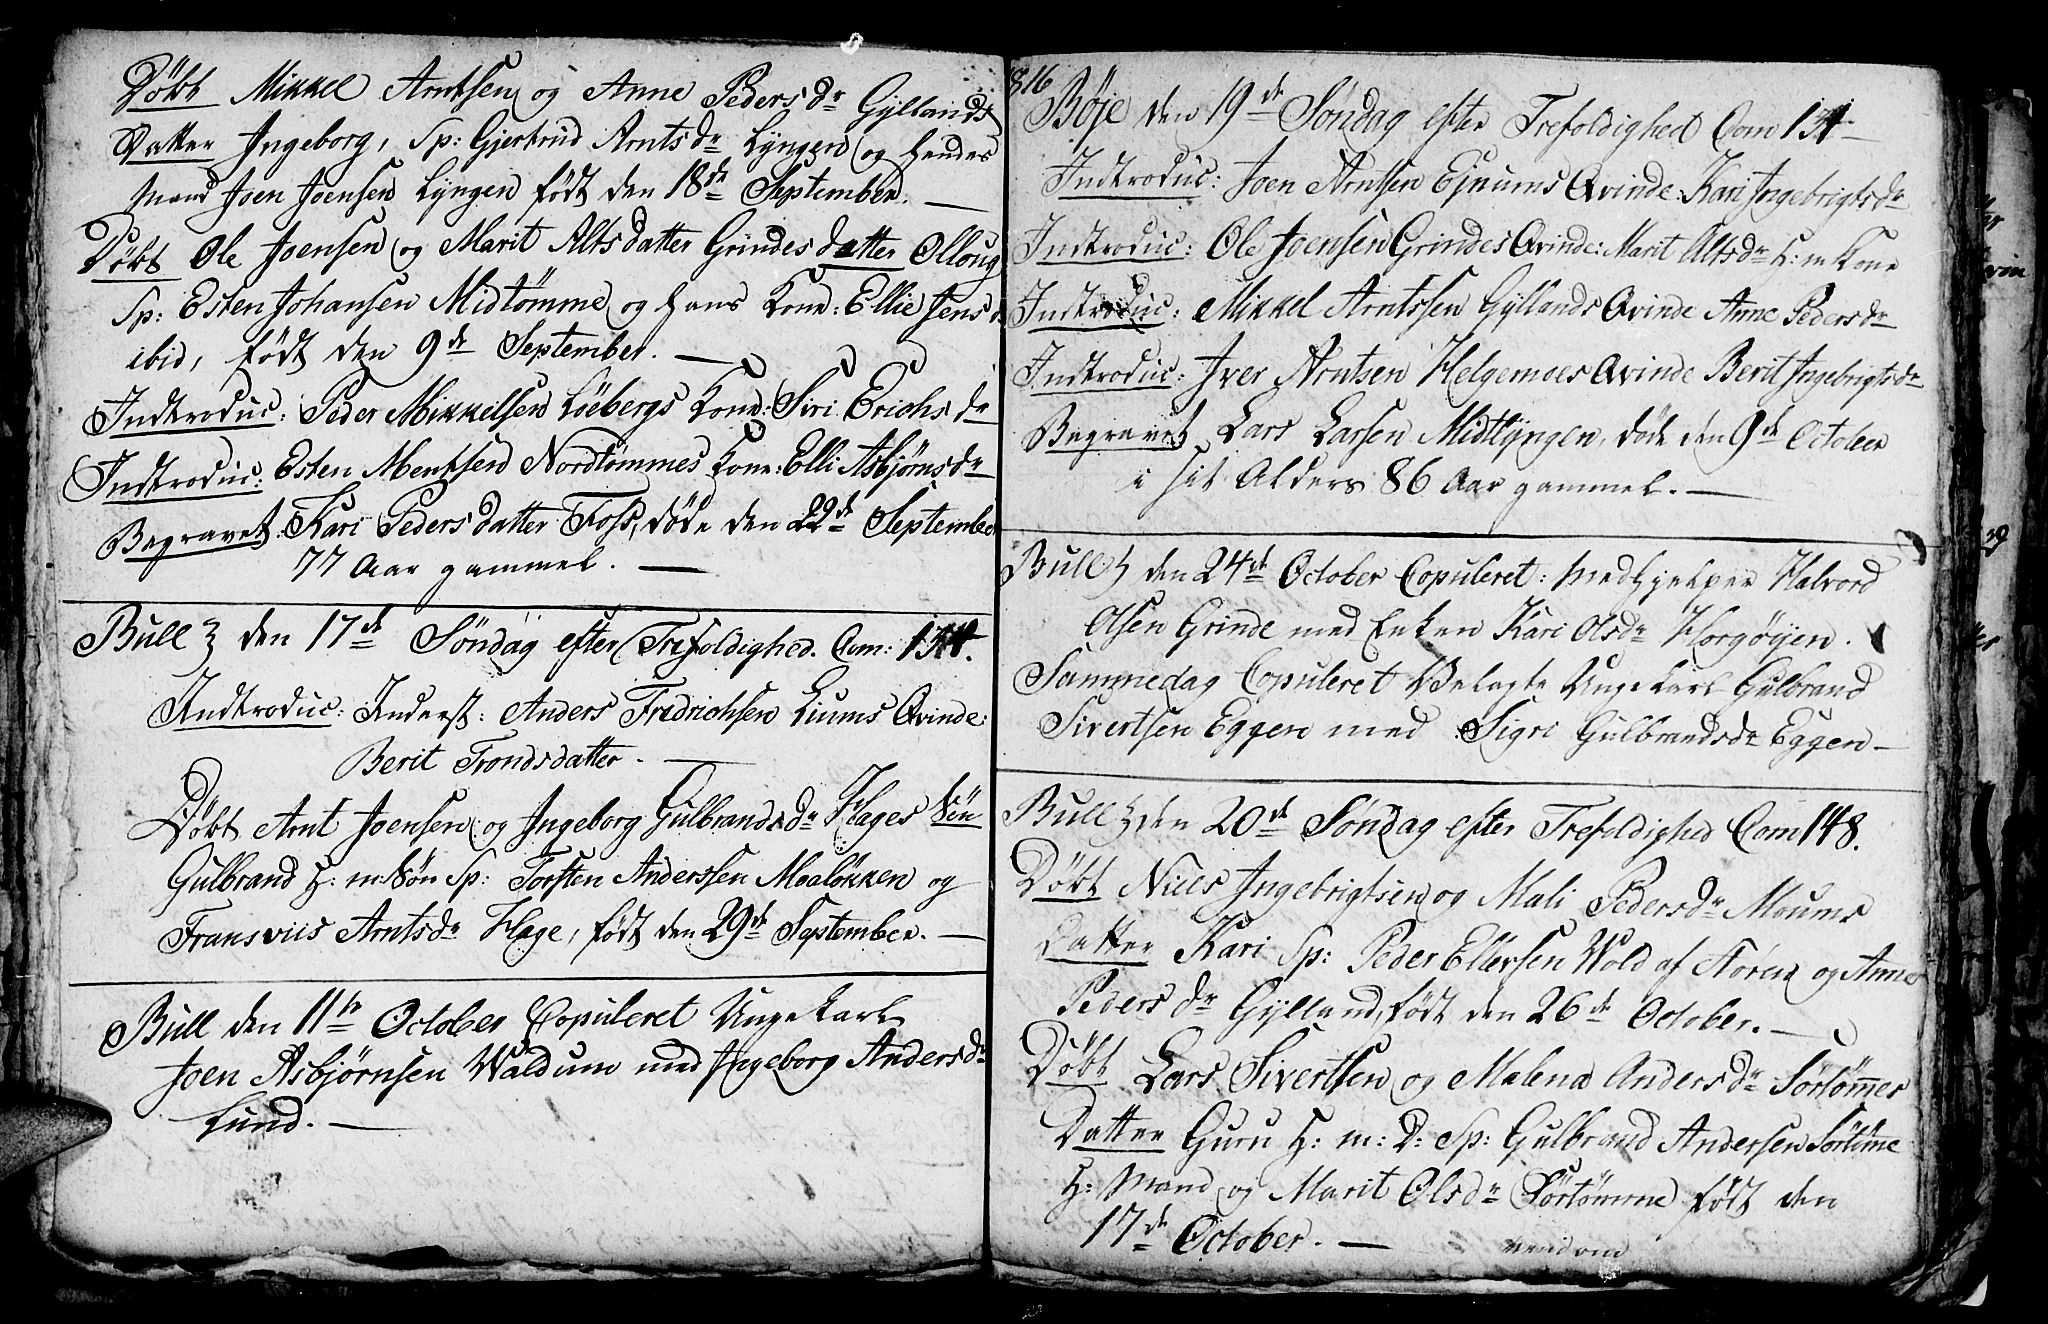 Døbt Mikkel Arntsen og Anne Peders dr Gyllands
Datter Ingeborg, Sp: Gjertrud Arntsdr Lyngen og hendes
Mand Joen Joensen Lyngen født den 18de September. —
Døbt Ole Joensen og Marit Altsdatter Grindes datter Olloug
Sp: Esten Johansen Midtømme og hans Kone: Ellie Jens d
ibid, født den 9de September. —
Indtroduc: Peder Mikkelsen Löebergs Kone: Siri Erichs dr
Indtroduc: Esten Mentsen Nordtømmes Kone: Elli Asbjørnsdr
Begravet Kari Pedersdatter Foss, døde den 22de September
77 Aar gammel. —
Bull den 17de Søndag efter Trefoldighed. Com:
Indtroduc: Inderst: Anders Fredrichsen Liums Qvinde:
Berit Trondsdatter. —
Døbt Arnt Joensen og Ingeborg Gulbrandsdr Hages Søn
Gulbrand H: m: Søn Sp: Torsten Anderssen Moaløkken og
Fransviis Arntsdr Hage, født den 29de September. —
Bull den 11te October Copuleret Ungekarl
Joen Asbjørnsen Waldum med Ingeborg Andersdr
Lund. —
1816
Bøje den 19de Søndag efter Trefoldighed Com
Indtroduc: Joen Arntsen Ejnums Qvinde: Kari Ingebrigtsdr
Indtroduc: Ole Joensen Grindes Qvinde: Marit Altsdr H: m Kone
Indtroduc: Mikkel Arntssen Gyllands Qvinde Anne Pedersdr
Indtroduc: Iver Arntsen Helgemoes Qvinde Berit Ingebrigtsdr
Begravet Lars Larsen Midtlyngen, døde den 9de October
i sit Alders 86 Aar gammel. —
Bull den 24de October Copuleret: Medhjelper Halvord
Olsen Grinde med Enken Kari Olsdr Horgøyen.
Sammedag Copuleret Ungekarl Gulbrand
Sivertsen Eggen med Sigri Gulbrandsdr Eggen —
Bull den 20de Søndag efter Trefoldighed Com 148.
Døbt Niels Ingebrigtsen og Mali Pedersdr Moums
Datter Kari Sp: Peder Ellevsen Wold af Støren og Anne
Peders dr Gylland, født den 26de October. —
Døbt Lars Sivertsen og Malena Andersdr Sørtømmes
Datter Guru H: m: D: Sp: Gulbrand Andersen Sørtømme
H: Mand og Marit Olsdr Sørtømme født den
17de October. —
vend om